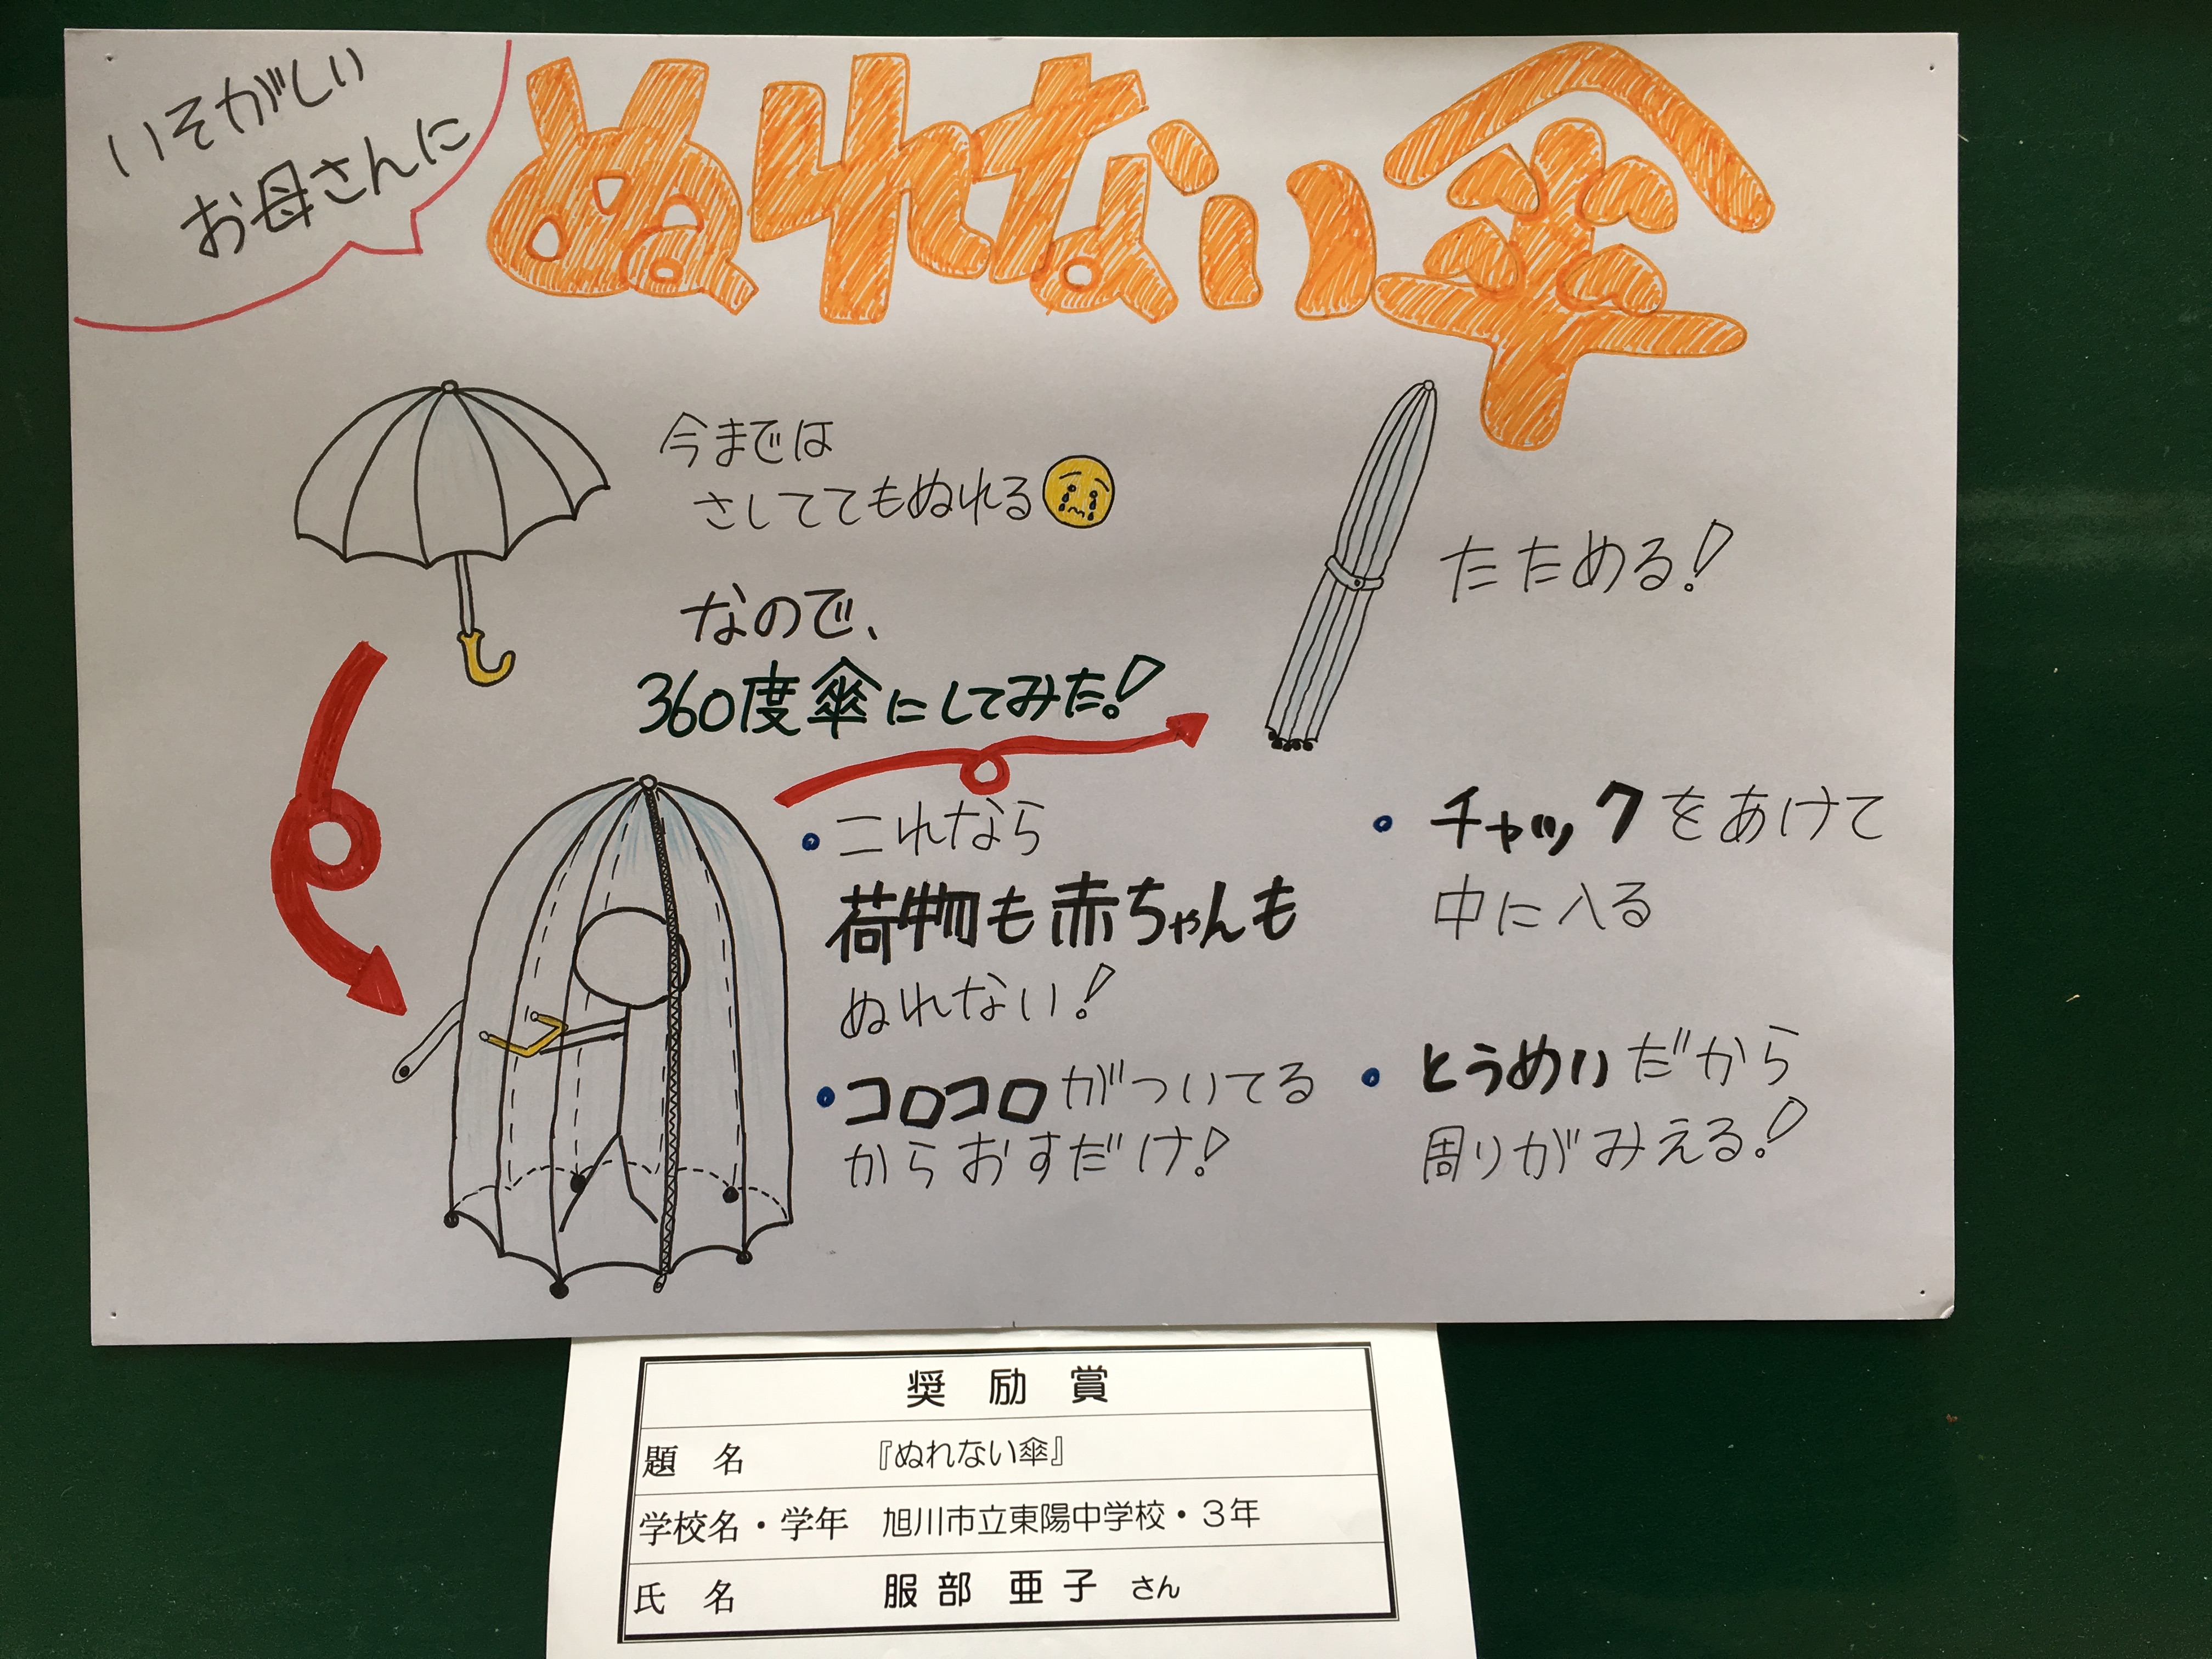 いそがしい
お母さんに
ぬれない傘
今までは
さしててもぬれる
なので、
360度傘にしてみた!
たためる!
・これなら
荷物も赤ちゃんも
ぬれない!
・コロコロがついてる
からおすだけ!
・チャックをあけて
中に入る
・とうめいだから
周りがみえる!
奨励賞
題名 『ぬれない傘』
学校名・学年 旭川市立東陽中学校・3年
氏名 服部 亜子 さん